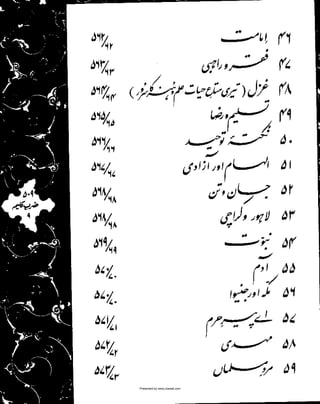 ۴۶ امامت ۵۶۲/۶۲
۴۷ فقر و راہبی ۵۶۳/۶۳
۴۸ غزل (تیری متاعِ حیات، علم و ہنر کا سرور) ۵۶۴/۶۴
۴۹ تسلیم و رضا ۵۶۵/۶۵
۵۰ نکتۂ توحید ۵۶۶/۶۶
۵۱ الہام اور آزادی ۵۶۷/۶۷
۵۲ جان و تن ۵۶۸/۶۸
۵۳ لاہور و کراچی ۵۶۸/۶۸
۵۴ نبوّت ۵۶۹/۶۹
۵۵ آدم ۵۷۰/۷۰
۵۶ مکہ اور جنیوا ۵۷۰/۷۰
۵۷ اے پیرِ حرم ۵۷۱/۷۱
۵۸ مہدی ۵۷۲/۷۲
۵۹ مردِ مسلماں ۵۷۳/۷۳
۵۰۹
ضربِ کلیم
۹
Presented by